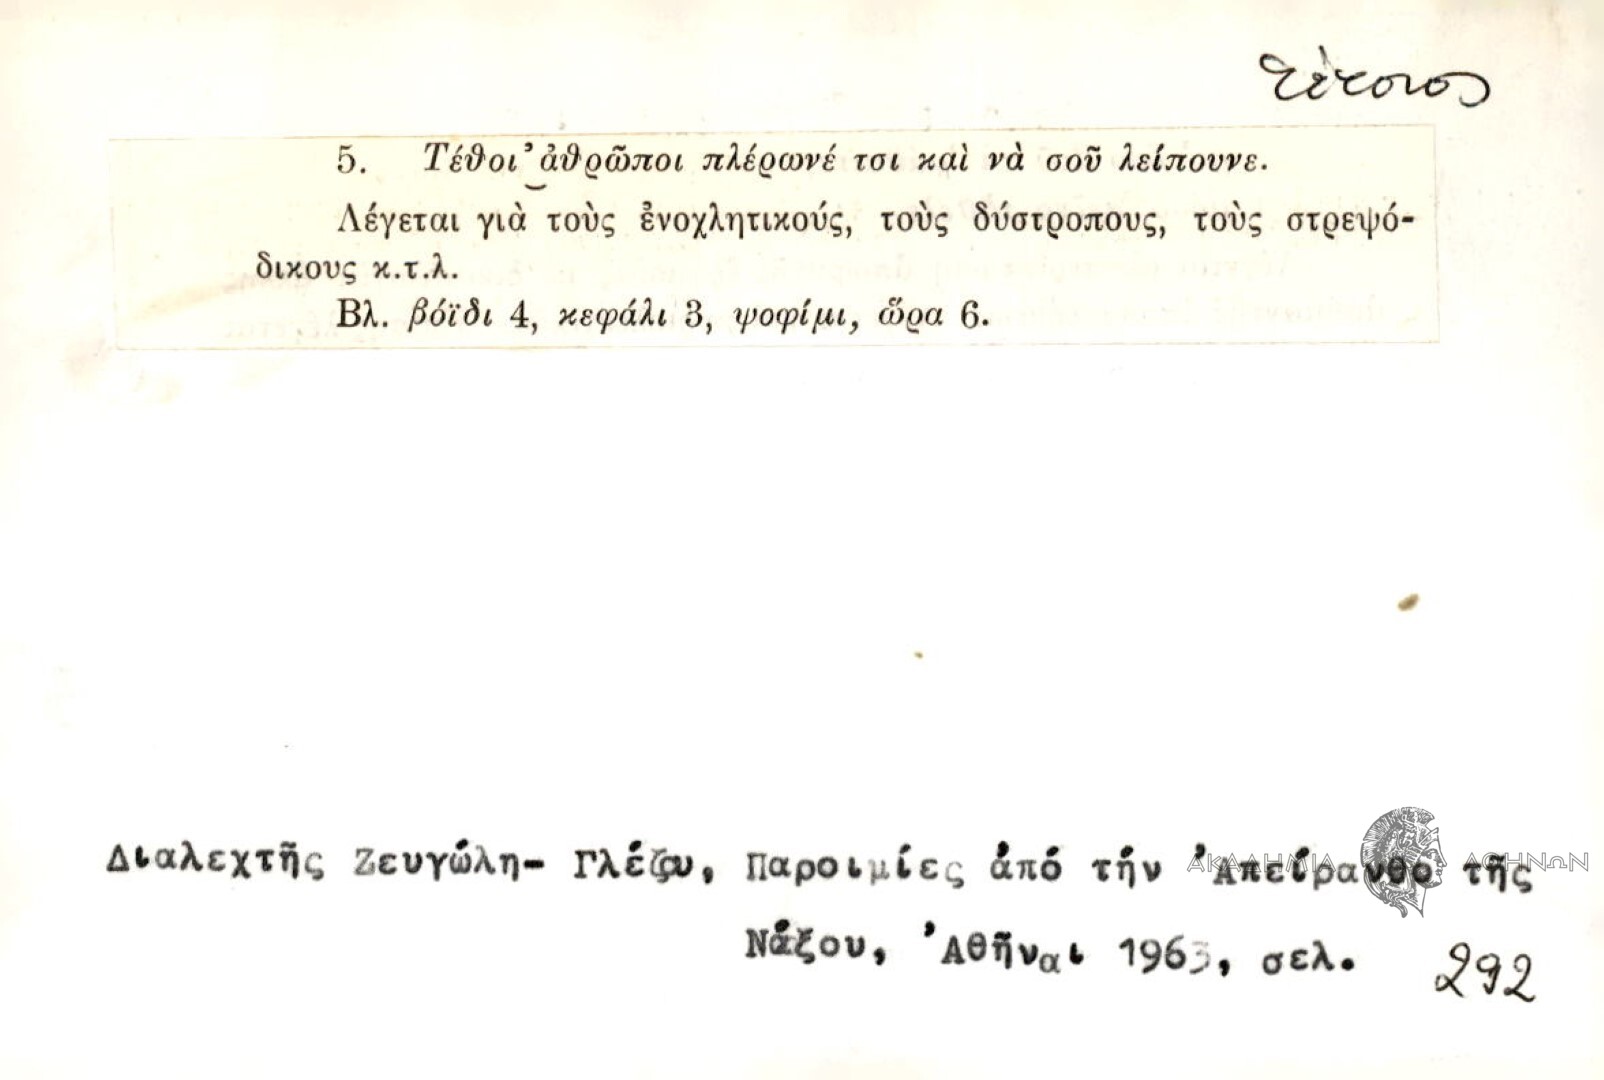 τέτοιος
5. Τέθοι’ ἀθρῶποι πλέρωνέ τσι καὶ νὰ σοῦ λείπουνε.
Λέγεται γιὰ τοὺς ἐνοχλητικούς, τοὺς δύστροπους, τοὺς στρεψό-
δικους κ.τ.λ.
Βλ. βόϊδι 4, κεφάλι 3, ψοφίμι, ὥρα 6.
Διαλεχτῆς Ζευγώλη- Γλέζου, Παροιμίες ἀπό τήν Ἀπείρανθο τῆς
ΑΚΑΔΗΜΙΑ ΑΘΗΝΩΝ
Νάξου, Ἀθῆναι 1963, σελ. 292